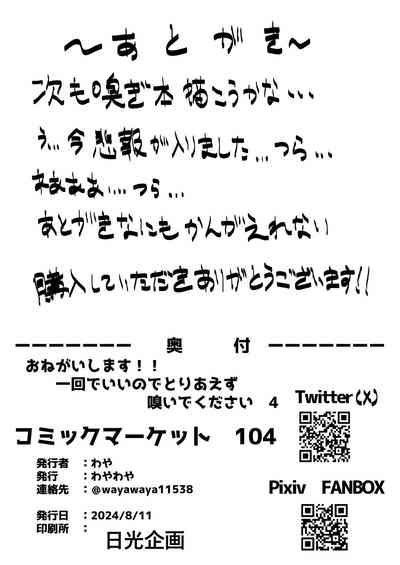 ～あとがき～
次も嗅ぎ本描こうかな...
う...今悲報が入りました...つら...
ねぁぁぁ...つら...
あとがきなにもかんがえれない
購入していただきありがとうございます!!
奥 付
おねがいします！！
一回でいいのでとりあえず
嗅いでください 4
Twitter(X)
コミックマーケット 104
発行者 ：わや
発行 ：わやわや
連絡先 ：@wayawaya11538
Pixiv FANBOX
発行日 ：2024/8/11
印刷所 ：日光企画